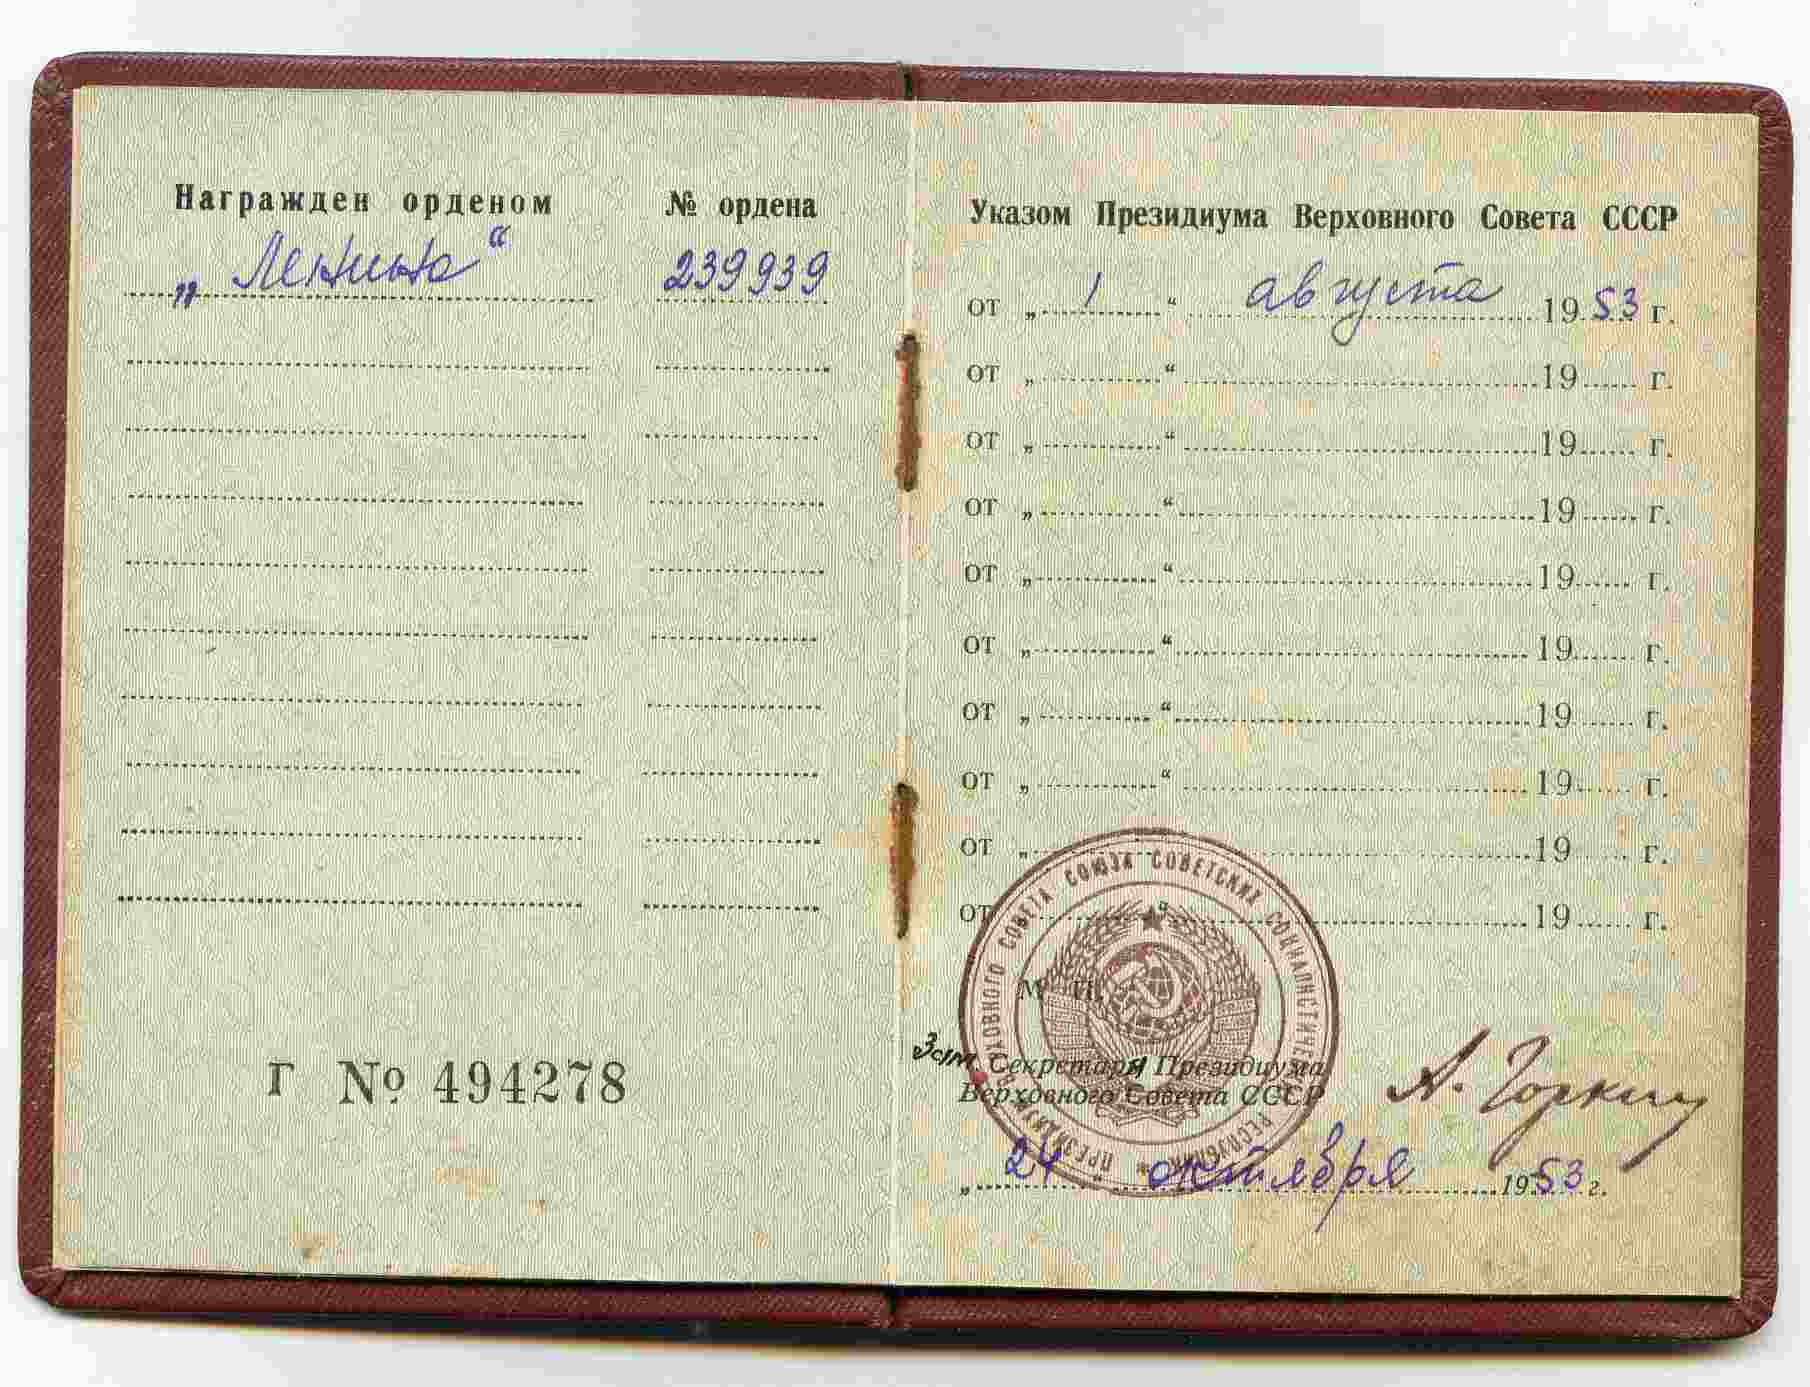 Награжден орденом № ордена
„Ленина“ 239939
Г № 494278
Указом Президиума Верховного Совета СССР
от „ 1 “ августа 1953 г.
от „ “ 19 г.
от „ “ 19 г.
от „ “ 19 г.
от „ “ 19 г.
от „ “ 19 г.
от „ “ 19 г.
от „ “ 19 г.
от „ 19 г.
от “ 19 г.
М. П.
ПРЕЗИДИУМ ВЕРХОВНОГО СОВЕТА СОЮЗА СОВЕТСКИХ СОЦИАЛИСТИЧЕСКИХ РЕСПУБЛИК *
Зам. Секретаря Президиума
Верховного Совета СССР
А. Горкин
„ 24 “ октября 1953 г.